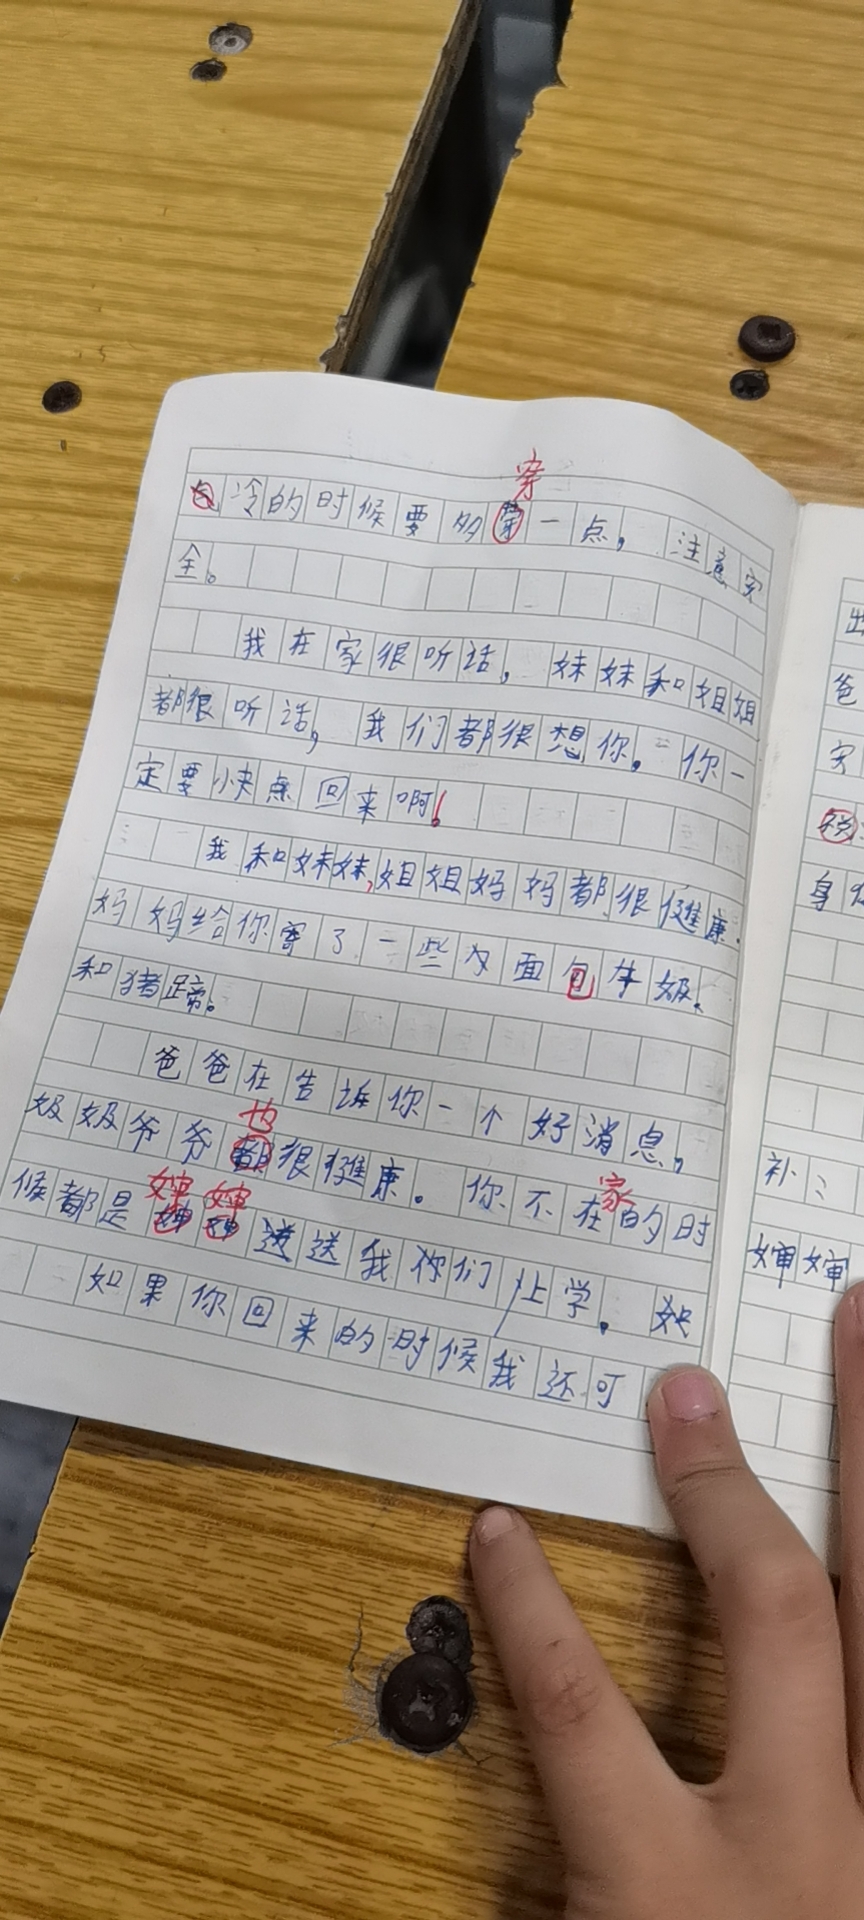 冷的时候要多穿一点，注意安
全。
我在家很听话，妹妹和姐姐
都很听话，我们都很想你，你一
定要快点回来啊！
我和妹妹，姐姐妈妈都很健康
妈妈给你寄了一些 面包牛奶、
和猪蹄。
爸爸在告诉你一个好消息，
奶奶爷爷也很健康。你不在家的时
候都是婶婶送我们上学。
如果你回来的时候我还可
出
爸
安
身体
补：
婶婶